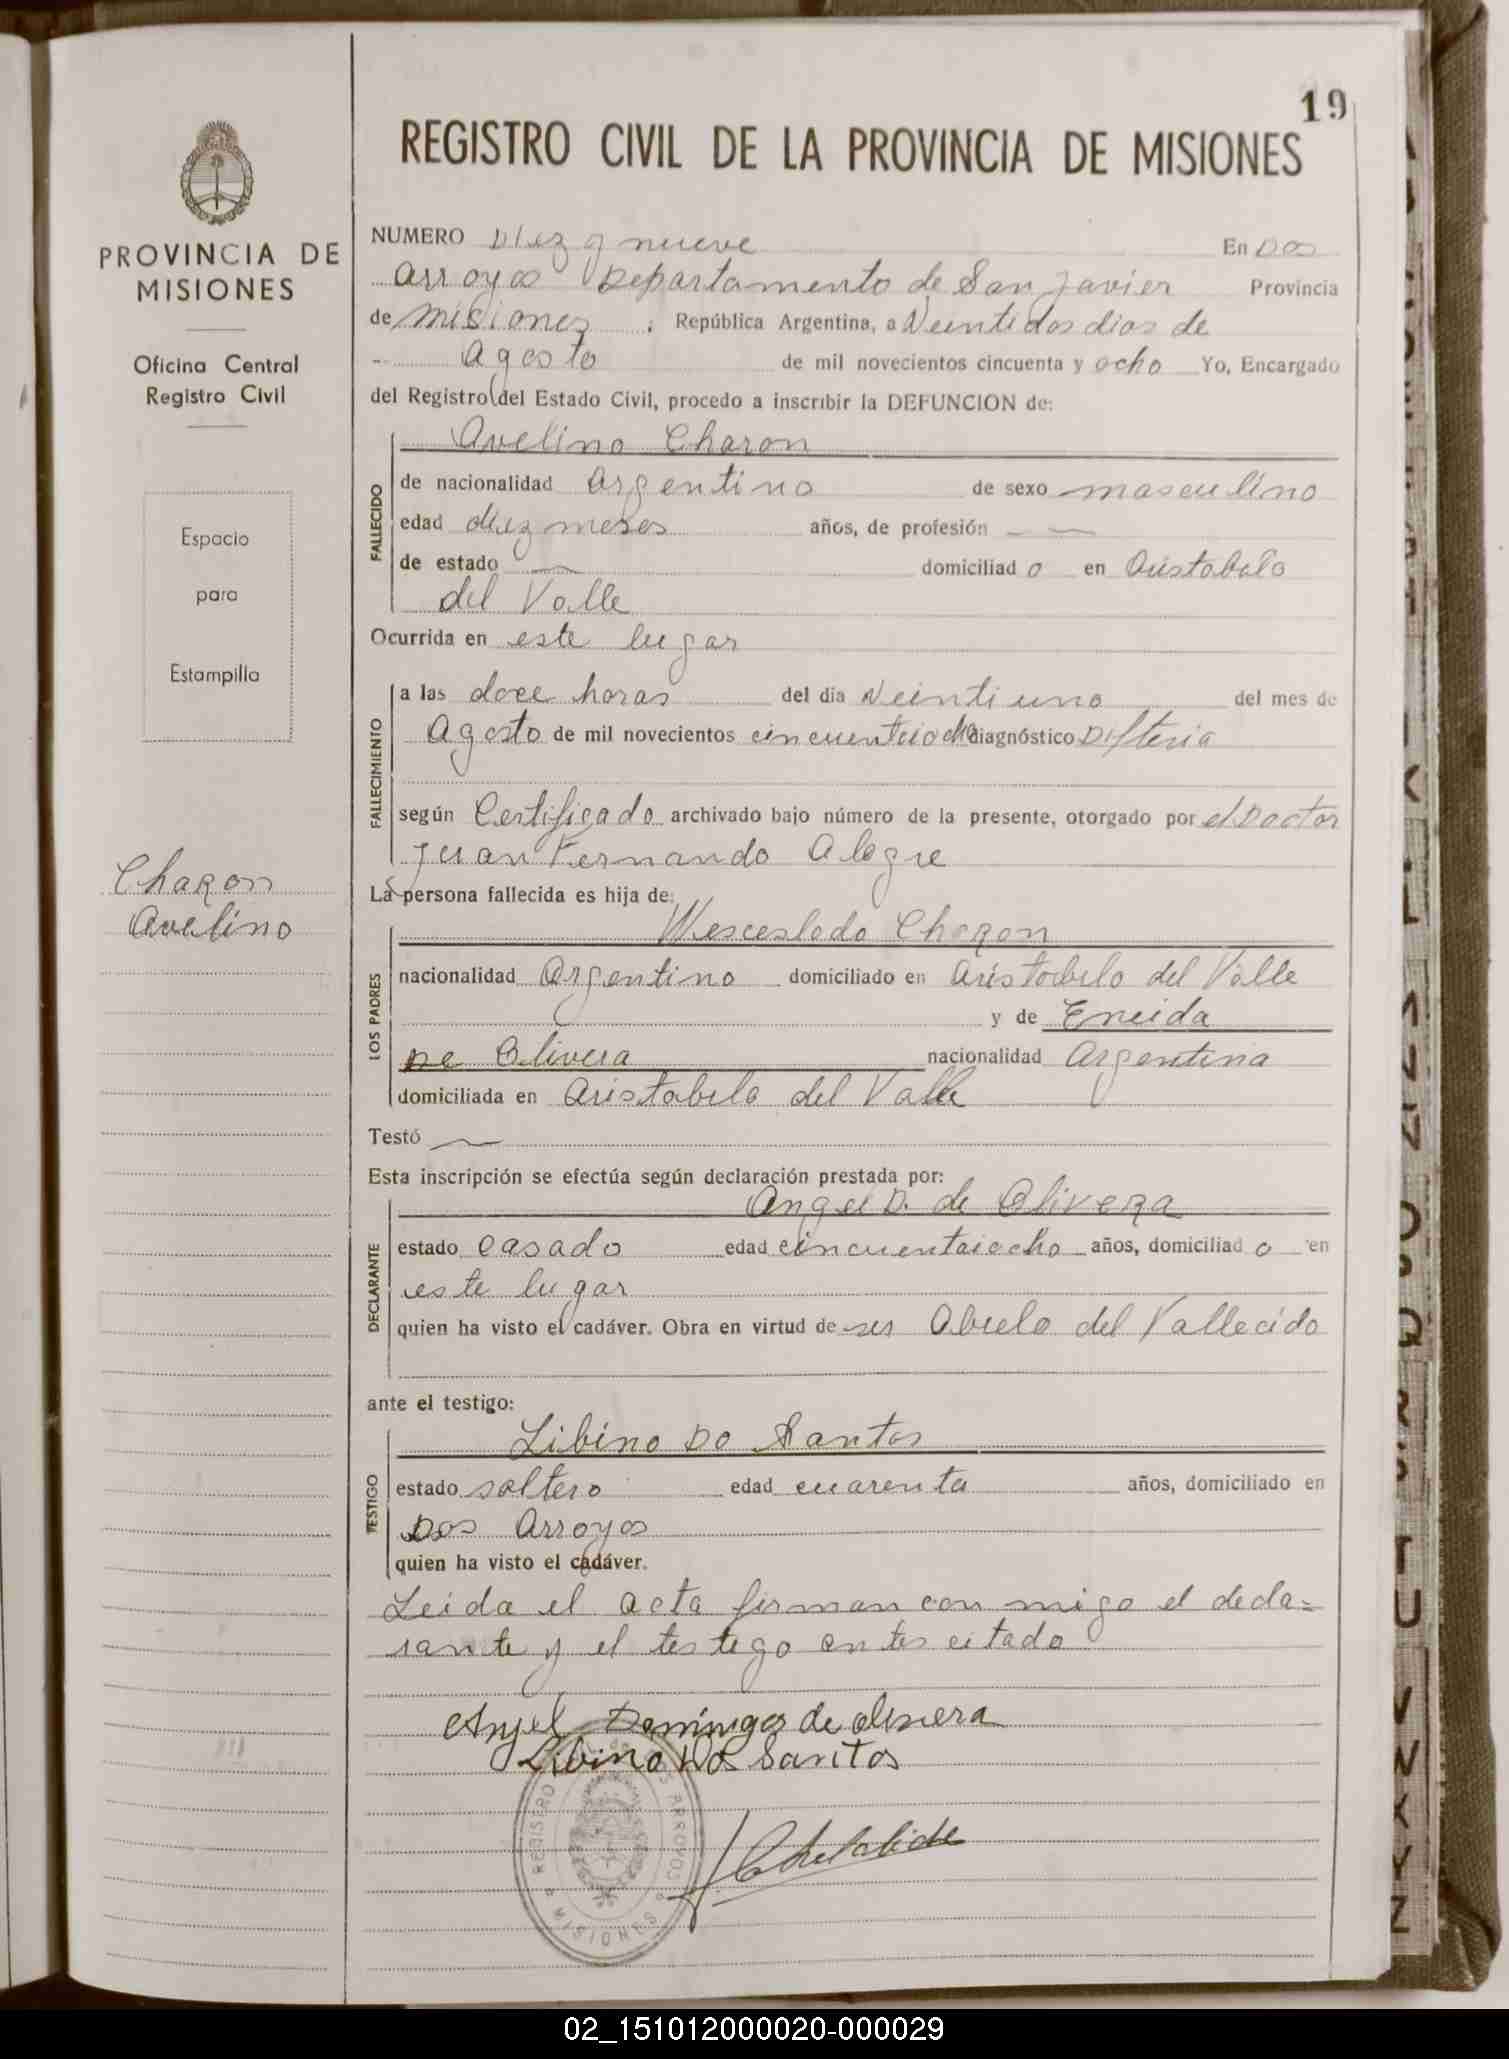 19
REGISTRO CIVIL DE LA PROVINCIA DE MISIONES
PROVINCIA DE
MISIONES
Oficina Central
Registro Civil
Espacio
para
Estampilla
Charon
Avelino
NUMERO Diez y nueve En Dos
Arroyos Departamento de San Javier Provincia
de Misiones ; República Argentina, a Veintidos dias de
Agosto de mil novecientos cincuenta y ocho Yo, Encargado
del Registro del Estado Civil, procedo a inscribir la DEFUNCION de:
FALLECIDO
Avelino Charon
de nacionalidad Argentino de sexo masculino
edad diez meses años, de profesión —
de estado — domiciliado en Aristobulo
del Valle
Ocurrida en este lugar
FALLECIMIENTO
a las doce horas del día Veintiuno del mes de
Agosto de mil novecientos cincuentaiocho diagnóstico Difteria
según Certificado archivado bajo número de la presente, otorgado por el Doctor
Juan Fernando Alegre
La persona fallecida es hija de:
LOS PADRES
Wesceslado Charon
nacionalidad Argentino domiciliado en Aristobulo del Valle
y de Eneida
De Olivera nacionalidad Argentina
domiciliada en Aristobulo del Valle
Testó —
Esta inscripción se efectúa según declaración prestada por:
DECLARANTE
Angel D. de Olivera
estado Casado edad cincuentaiocho años, domiciliado en
este lugar
quien ha visto el cadáver. Obra en virtud de ser Abuelo del Fallecido
ante el testigo:
TESTIGO
Libino Do Santos
estado soltero edad cuarenta años, domiciliado en
Dos Arroyos
quien ha visto el cadáver.
Leida el acta firman con migo el decla=
rante y el testigo antes citado
Anjel Domingos de olivera
Libino Dos Santos
REGISTRO ARROYOS MISIONES
02_151012000020-000029